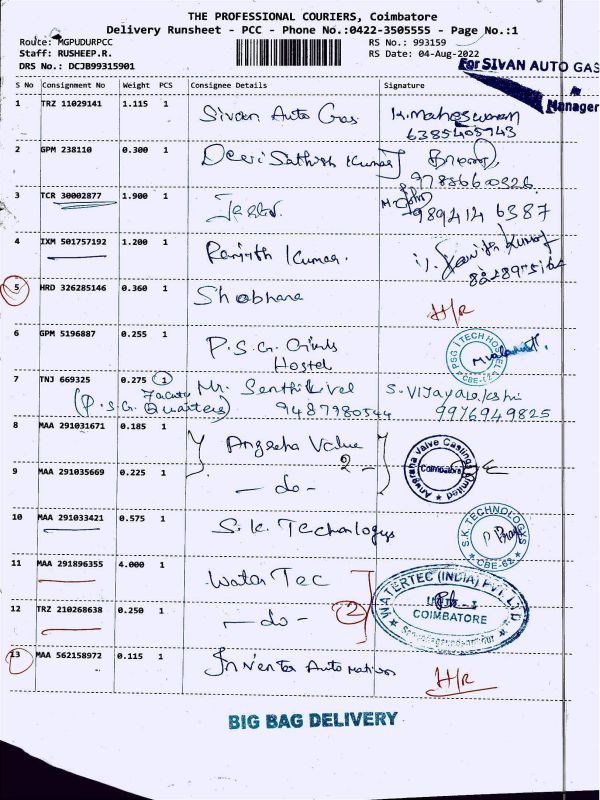 THE PROFESSIONAL COURIERS, Coimbatore
Delivery Runsheet - PCC - Phone No.:0422-3505555 - Page No.:1
Route: MGPUDURPCC
RS No.: 993159
Staff: RUSHEEP.R.
RS Date: 04-Aug-2022
DRS No.: DCJB99315901
For SIVAN AUTO GAS
Manager
S No Consignment No Weight PCS Consignee Details Signature
1 TRZ 11029141 1.115 1 Sivan Auto Gas K. Maheswaran
6385405743
2 GPM 238110 0.300 1 Devi Sathish Kumar
3 TCR 30002877 1.900 1
9894146387
4 IXM 501757192 1.200 1 Ranjith Kumar.
5 HRD 326285146 0.360 1 Shobhana H/R
6 GPM 5196887 0.255 1 P.S.G. Girls
Hostel
PSG I TECH HOSTEL
CBE-62
7 TNJ 669325 0.275 1 Mr. Senthil vel S. Vijayalakshmi
(P.S.G. Quarters) 9487980544 9976949825
8 MAA 291031671 0.185 1 Value
2
Anugraha Valve Castings Limited
Coimbatore
9 MAA 291035669 0.225 1 - do -
10 MAA 291033421 0.575 1 S.K. Technologys
S.K. TECHNOLOGYS
CBE-62
11 MAA 291896355 4.000 1 Water Tec
WATERTEC (INDIA) PVT LTD
COIMBATORE
12 TRZ 210268638 0.250 1 - do - 2
13 MAA 562158972 0.115 1 Inventa Automation H/R
BIG BAG DELIVERY